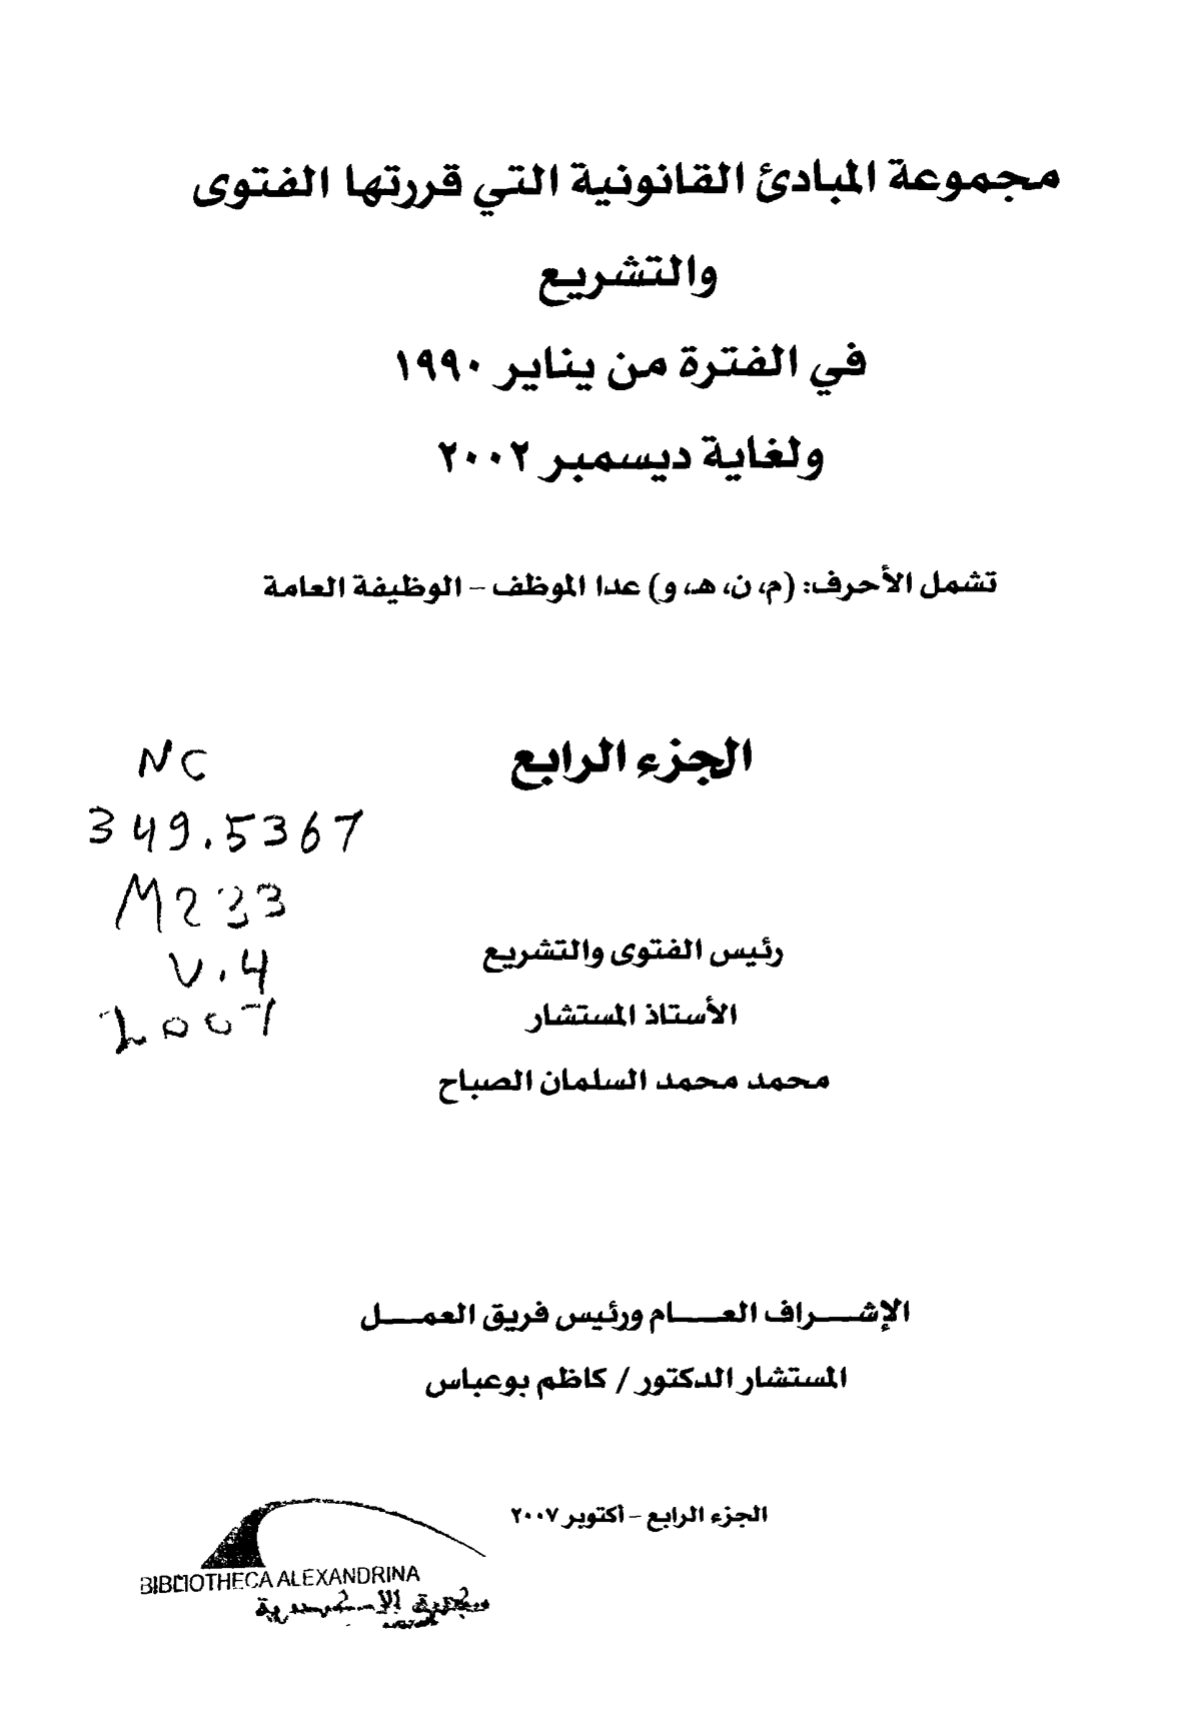 مجموعة المبادئ القانونية التي قررتها الفتوى
والتشريع
في الفترة من يناير ١٩٩٠
ولغاية ديسمبر ٢٠٠٢
تشمل الأحرف: (م، ن، هـ، و) عدا الموظف – الوظيفة العامة
الجزء الرابع
NC
349.5367
M233
v.4
2007
رئيس الفتوى والتشريع
الأستاذ المستشار
محمد محمد السلمان الصباح
الإشـــراف العـــام ورئيس فريق العمـــل
المستشار الدكتور / كاظم بوعباس
الجزء الرابع – أكتوبر ٢٠٠٧
BIBLIOTHECA ALEXANDRINA
مكتبة الإسكندرية